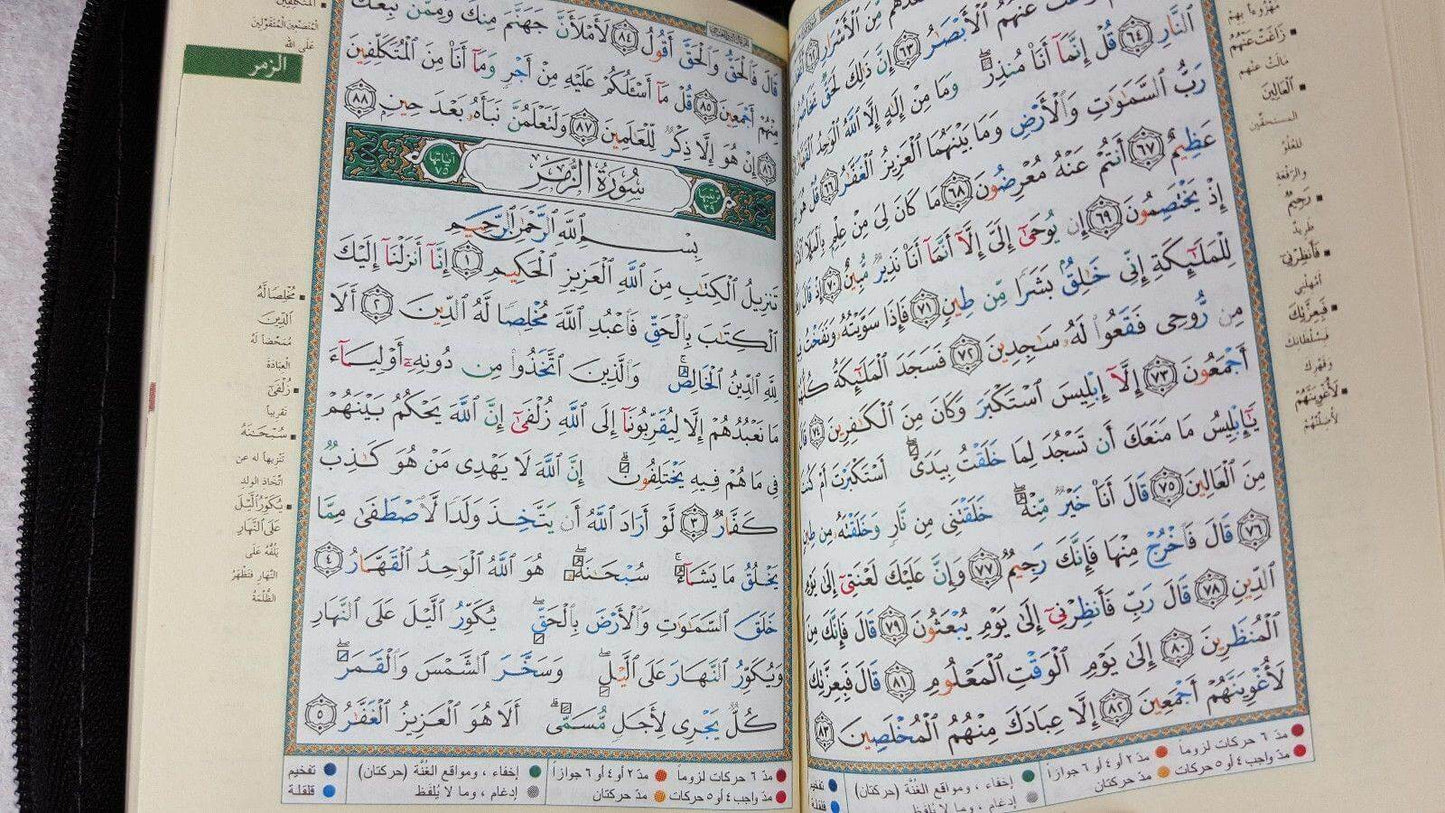 مِّنَ ٱلْأَشْرَارِ
عَنْهُمُ ٱلْأَبْصَٰرُ ٦٣ إِنَّ ذَٰلِكَ لَحَقٌّ تَخَاصُمُ
ٱلنَّارِ ٦٤ قُلْ إِنَّمَآ أَنَا۠ مُنذِرٌ وَمَا مِنْ إِلَٰهٍ إِلَّا ٱللَّهُ ٱلْوَٰحِدُ
رَبُّ ٱلسَّمَٰوَٰتِ وَٱلْأَرْضِ وَمَا بَيْنَهُمَا ٱلْعَزِيزُ ٱلْغَفَّٰرُ ٦٦ قُلْ هُوَ
عَظِيمٌ ٦٧ أَنتُمْ عَنْهُ مُعْرِضُونَ ٦٨ مَا كَانَ لِىَ مِنْ عِلْمٍۭ بِٱلْمَلَإِ
إِذْ يَخْتَصِمُونَ ٦٩ إِن يُوحَىٰٓ إِلَىَّ إِلَّآ أَنَّمَآ أَنَا۠ نَذِيرٌ مُّبِينٌ ٧٠ إِذْ قَالَ
لِلْمَلَٰٓئِكَةِ إِنِّى خَٰلِقٌۢ بَشَرًا مِّن طِينٍ ٧١ فَإِذَا سَوَّيْتُهُۥ وَنَفَخْتُ
مِن رُّوحِى فَقَعُوا۟ لَهُۥ سَٰجِدِينَ ٧٢ فَسَجَدَ ٱلْمَلَٰٓئِكَةُ
أَجْمَعُونَ ٧٣ إِلَّآ إِبْلِيسَ ٱسْتَكْبَرَ وَكَانَ مِنَ ٱلْكَٰفِرِينَ ٧٤
يَٰٓإِبْلِيسُ مَا مَنَعَكَ أَن تَسْجُدَ لِمَا خَلَقْتُ بِيَدَىَّ أَسْتَكْبَرْتَ أَمْ
مِنَ ٱلْعَالِينَ ٧٥ قَالَ أَنَا۠ خَيْرٌ مِّنْهُ خَلَقْتَنِى مِن نَّارٍ وَخَلَقْتَهُۥ مِن
٧٦ قَالَ فَٱخْرُجْ مِنْهَا فَإِنَّكَ رَجِيمٌ ٧٧ وَإِنَّ عَلَيْكَ لَعْنَتِىٓ إِلَىٰ يَوْمِ
ٱلدِّينِ ٧٨ قَالَ رَبِّ فَأَنظِرْنِىٓ إِلَىٰ يَوْمِ يُبْعَثُونَ ٧٩ قَالَ فَإِنَّكَ مِنَ
ٱلْمُنظَرِينَ ٨٠ إِلَىٰ يَوْمِ ٱلْوَقْتِ ٱلْمَعْلُومِ ٨١ قَالَ فَبِعِزَّتِكَ
لَأُغْوِيَنَّهُمْ أَجْمَعِينَ ٨٢ إِلَّا عِبَادَكَ مِنْهُمُ ٱلْمُخْلَصِينَ ٨٣
زَاغَتْ عَنْهُمُ
مالت عنهم
ٱلْعَالِينَ
المستحقين
للعلو
والرفعة
رَجِيمٌ
طريد
فَأَنظِرْنِىٓ
أمهلني
فَبِعِزَّتِكَ
فبسلطانك
وقهرك
لَأُغْوِيَنَّهُمْ
لأضلنهم
مدّ ٦ حركات لزوماً مدّ ٢ أو ٤ أو ٦ جوازاً إخفاء ، ومواقع الغُنَّة (حركتان) تفخيم
مدّ واجب ٤ أو ٥ حركات مدّ حركتان إدغام ، وما لا يُلفَظ قلقلة
قَالَ فَٱلْحَقُّ وَٱلْحَقَّ أَقُولُ ٨٤ لَأَمْلَأَنَّ جَهَنَّمَ مِنكَ وَمِمَّن تَبِعَكَ
مِنْهُمْ أَجْمَعِينَ ٨٥ قُلْ مَآ أَسْـَٔلُكُمْ عَلَيْهِ مِنْ أَجْرٍ وَمَآ أَنَا۠ مِنَ ٱلْمُتَكَلِّفِينَ
٨٦ إِنْ هُوَ إِلَّا ذِكْرٌ لِّلْعَٰلَمِينَ ٨٧ وَلَتَعْلَمُنَّ نَبَأَهُۥ بَعْدَ حِينٍۭ ٨٨
ترتيبها ٣٩ سُورَةُ ٱلزُّمَرِ آياتها ٧٥
بِسْمِ ٱللَّهِ ٱلرَّحْمَٰنِ ٱلرَّحِيمِ
تَنزِيلُ ٱلْكِتَٰبِ مِنَ ٱللَّهِ ٱلْعَزِيزِ ٱلْحَكِيمِ ١ إِنَّآ أَنزَلْنَآ إِلَيْكَ
ٱلْكِتَٰبَ بِٱلْحَقِّ فَٱعْبُدِ ٱللَّهَ مُخْلِصًا لَّهُ ٱلدِّينَ ٢ أَلَا
لِلَّهِ ٱلدِّينُ ٱلْخَالِصُ وَٱلَّذِينَ ٱتَّخَذُوا۟ مِن دُونِهِۦٓ أَوْلِيَآءَ
مَا نَعْبُدُهُمْ إِلَّا لِيُقَرِّبُونَآ إِلَى ٱللَّهِ زُلْفَىٰٓ إِنَّ ٱللَّهَ يَحْكُمُ بَيْنَهُمْ
فِى مَا هُمْ فِيهِ يَخْتَلِفُونَ إِنَّ ٱللَّهَ لَا يَهْدِى مَنْ هُوَ كَٰذِبٌ
كَفَّارٌ ٣ لَّوْ أَرَادَ ٱللَّهُ أَن يَتَّخِذَ وَلَدًا لَّٱصْطَفَىٰ مِمَّا
يَخْلُقُ مَا يَشَآءُ سُبْحَٰنَهُۥ هُوَ ٱللَّهُ ٱلْوَٰحِدُ ٱلْقَهَّارُ ٤
خَلَقَ ٱلسَّمَٰوَٰتِ وَٱلْأَرْضَ بِٱلْحَقِّ يُكَوِّرُ ٱلَّيْلَ عَلَى ٱلنَّهَارِ
وَيُكَوِّرُ ٱلنَّهَارَ عَلَى ٱلَّيْلِ وَسَخَّرَ ٱلشَّمْسَ وَٱلْقَمَرَ
كُلٌّ يَجْرِى لِأَجَلٍ مُّسَمًّى أَلَا هُوَ ٱلْعَزِيزُ ٱلْغَفَّٰرُ ٥
المتصنعين المتقولين
على الله
الزمر
مُخْلِصًا لَّهُ
ٱلدِّينَ
ممحضا له
العبادة
زُلْفَىٰٓ
تقريبا
سُبْحَٰنَهُۥ
تنزيها له عن
اتخاذ الولد
يُكَوِّرُ ٱلَّيْلَ
عَلَى ٱلنَّهَارِ
يلفه على
النهار فتظهر
الظلمة
مدّ ٦ حركات لزوماً مدّ ٢ أو ٤ أو ٦ جوازاً إخفاء ، ومواقع الغُنَّة (حركتان) تفخيم
مدّ واجب ٤ أو ٥ حركات مدّ حركتان إدغام ، وما لا يُلفَظ قلقلة